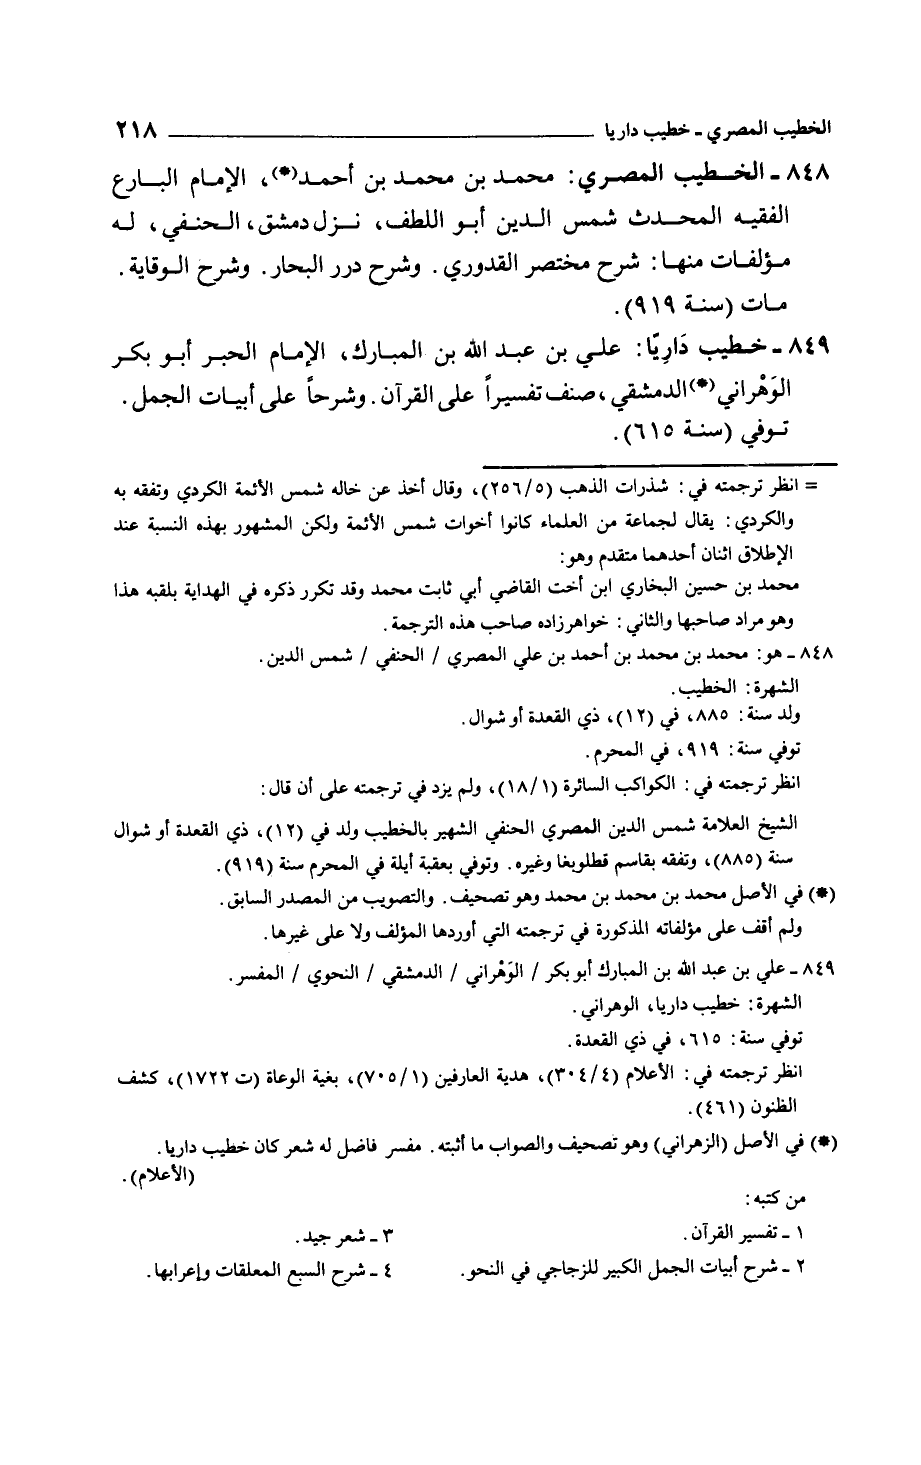 الخطيب المصري - خطيب داريا ٢١٨
٨٤٨ - الخطيب المصري: محمد بن محمد بن أحمد(*)، الإمام البارع
الفقيه المحدث شمس الدين أبو اللطف، نزل دمشق، الحنفي، له
مؤلفات منها: شرح مختصر القدوري. وشرح درر البحار. وشرح الوقاية.
مات (سنة ٩١٩).
٨٤٩ - خطيب دَارِيّا: علي بن عبد الله بن المبارك، الإمام الحبر أبو بكر
الوَهْراني(*) الدمشقي، صنف تفسيراً على القرآن. وشرحاً على أبيات الجمل.
توفي (سنة ٦١٥).
= انظر ترجمته في: شذرات الذهب (٢٥٦/٥)، وقال أخذ عن خاله شمس الأئمة الكردي وتفقه به
والكردي: يقال لجماعة من العلماء كانوا أخوات شمس الأئمة ولكن المشهور بهذه النسبة عند
الإطلاق اثنان أحدهما متقدم وهو:
محمد بن حسين البخاري ابن أخت القاضي أبي ثابت محمد وقد تكرر ذكره في الهداية بلقبه هذا
وهو مراد صاحبها والثاني: خواهرزاده صاحب هذه الترجمة.
٨٤٨ - هو: محمد بن محمد بن أحمد بن علي المصري / الحنفي / شمس الدين.
الشهرة: الخطيب.
ولد سنة: ٨٨٥، في (١٢)، ذي القعدة أو شوال.
توفي سنة: ٩١٩، في المحرم.
انظر ترجمته في: الكواكب السائرة (١٨/١)، ولم يزد في ترجمته على أن قال:
الشيخ العلامة شمس الدين المصري الحنفي الشهير بالخطيب ولد في (١٢)، ذي القعدة أو شوال
سنة (٨٨٥)، وتفقه بقاسم قطلوبغا وغيره. وتوفي بعقبة أيلة في المحرم سنة (٩١٩).
(*) في الأصل محمد بن محمد بن محمد وهو تصحيف. والتصويب من المصدر السابق.
ولم أقف على مؤلفاته المذكورة في ترجمته التي أوردها المؤلف ولا على غيرها.
٨٤٩ - علي بن عبد الله بن المبارك أبو بكر / الوَهْراني / الدمشقي / النحوي / المفسر.
الشهرة: خطيب داريا، الوهراني.
توفي سنة: ٦١٥، في ذي القعدة.
انظر ترجمته في: الأعلام (٣٠٤/٤)، هدية العارفين (٧٠٥/١)، بغية الوعاة (ت ١٧٢٢)، كشف
الظنون (٤٦١).
(*) في الأصل (الزهراني) وهو تصحيف والصواب ما أثبته. مفسر فاضل له شعر كان خطيب داريا.
(الأعلام).
من كتبه:
١ - تفسير القرآن. ٣ - شعر جيد.
٢ - شرح أبيات الجمل الكبير للزجاجي في النحو. ٤ - شرح السبع المعلقات وإعرابها.